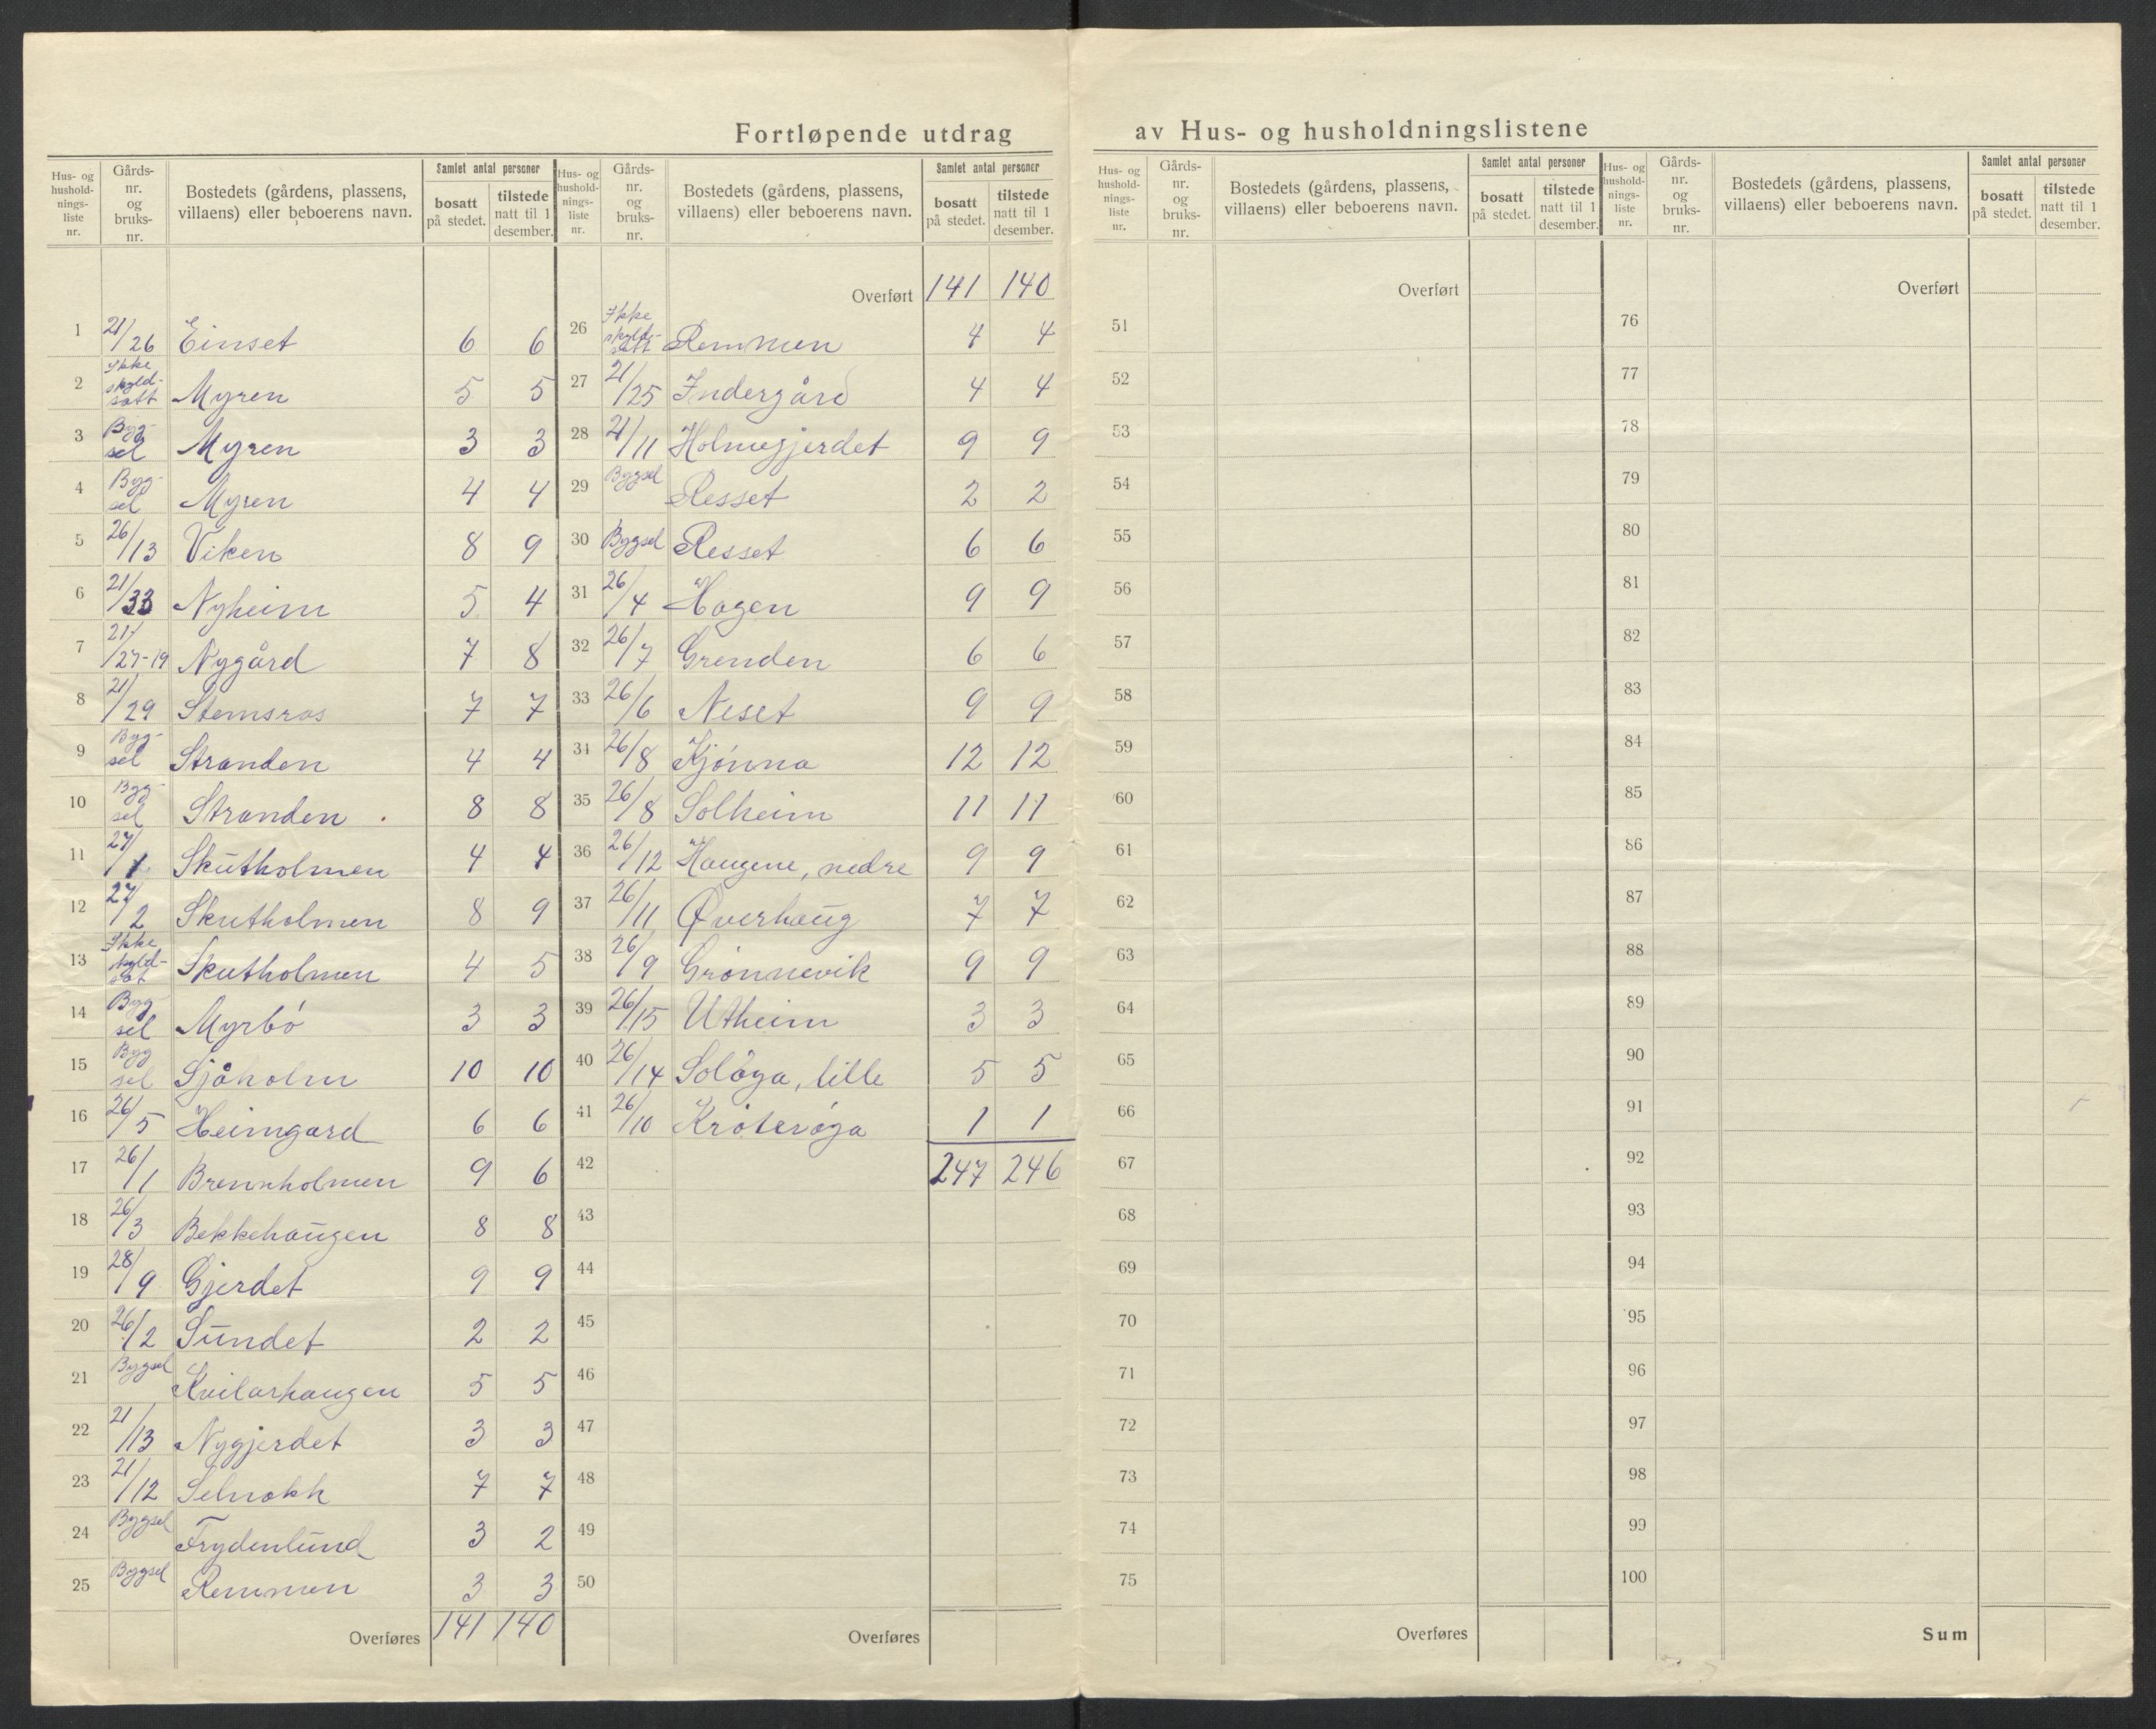 Fortløpende utdrag av Hus- og husholdningslistene
Hus- og husholdnings-liste nr. | Gårds-nr. og bruks-nr. | Bostedets (gårdens, plassens, villaens) eller beboerens navn. | Samlet antal personer | bosatt på stedet. | tilstede natt til 1 desember.
1 21/26 Einset 6 6
2 Ikke skyld-satt Myren 5 5
3 Byg-sel Myren 3 3
4 Byg-sel Myren 4 4
5 26/13 Viken 8 9
6 21/33 Nyheim 5 4
7 21/27-19 Nygård 7 8
8 21/29 Stemsras 7 7
9 Byg-sel Stranden 4 4
10 Byg-sel Stranden 8 8
11 27/1 Skutholmen 4 4
12 27/2 Skutholmen 8 9
13 Ikke skyld-sat Skutholmen 4 5
14 Byg sel Myrbö 3 3
15 Byg sel Sjåholm 10 10
16 26/5 Heimgard 6 6
17 26/1 Brennholmen 9 6
18 26/3 Bekkehaugen 8 8
19 28/9 Gjerdet 9 9
20 26/2 Sundet 2 2
21 Bygsel Kvilarhaugen 5 5
22 21/13 Nygjerdet 3 3
23 21/12 Selnakk 7 7
24 Bygsel Frydenlund 3 2
25 Bygsel Remmen 3 3
Overføres 141 140
Hus- og husholdnings-liste nr. | Gårds-nr. og bruks-nr. | Bostedets (gårdens, plassens, villaens) eller beboerens navn. | Samlet antal personer | bosatt på stedet. | tilstede natt til 1 desember.
Overført 141 140
26 Ikke skyld-satt Remmen 4 4
27 21/25 Indergård 4 4
28 21/11 Holmegjerdet 9 9
29 Bygsel Resset 2 2
30 Bygsel Resset 6 6
31 26/4 Hagen 9 9
32 26/7 Grenden 6 6
33 26/6 Neset 9 9
34 26/8 Kjönna 12 12
35 26/8 Solheim 11 11
36 26/12 Haugene, nedre 9 9
37 26/11 Øverhaug 7 7
38 26/9 Grönnevik 9 9
39 26/15 Utheim 3 3
40 26/14 Solöya, lille 5 5
41 26/10 Kröteröya 1 1
42 247 246
43
44
45
46
47
48
49
50
Overføres
Hus- og husholdnings-liste nr. | Gårds-nr. og bruks-nr. | Bostedets (gårdens, plassens, villaens) eller beboerens navn. | Samlet antal personer | bosatt på stedet. | tilstede natt til 1 desember.
Overført
51
52
53
54
55
56
57
58
59
60
61
62
63
64
65
66
67
68
69
70
71
72
73
74
75
Overføres
Hus- og husholdnings-liste nr. | Gårds-nr. og bruks-nr. | Bostedets (gårdens, plassens, villaens) eller beboerens navn. | Samlet antal personer | bosatt på stedet. | tilstede natt til 1 desember.
Overført
76
77
78
79
80
81
82
83
84
85
86
87
88
89
90
91
92
93
94
95
96
97
98
99
100
Sum